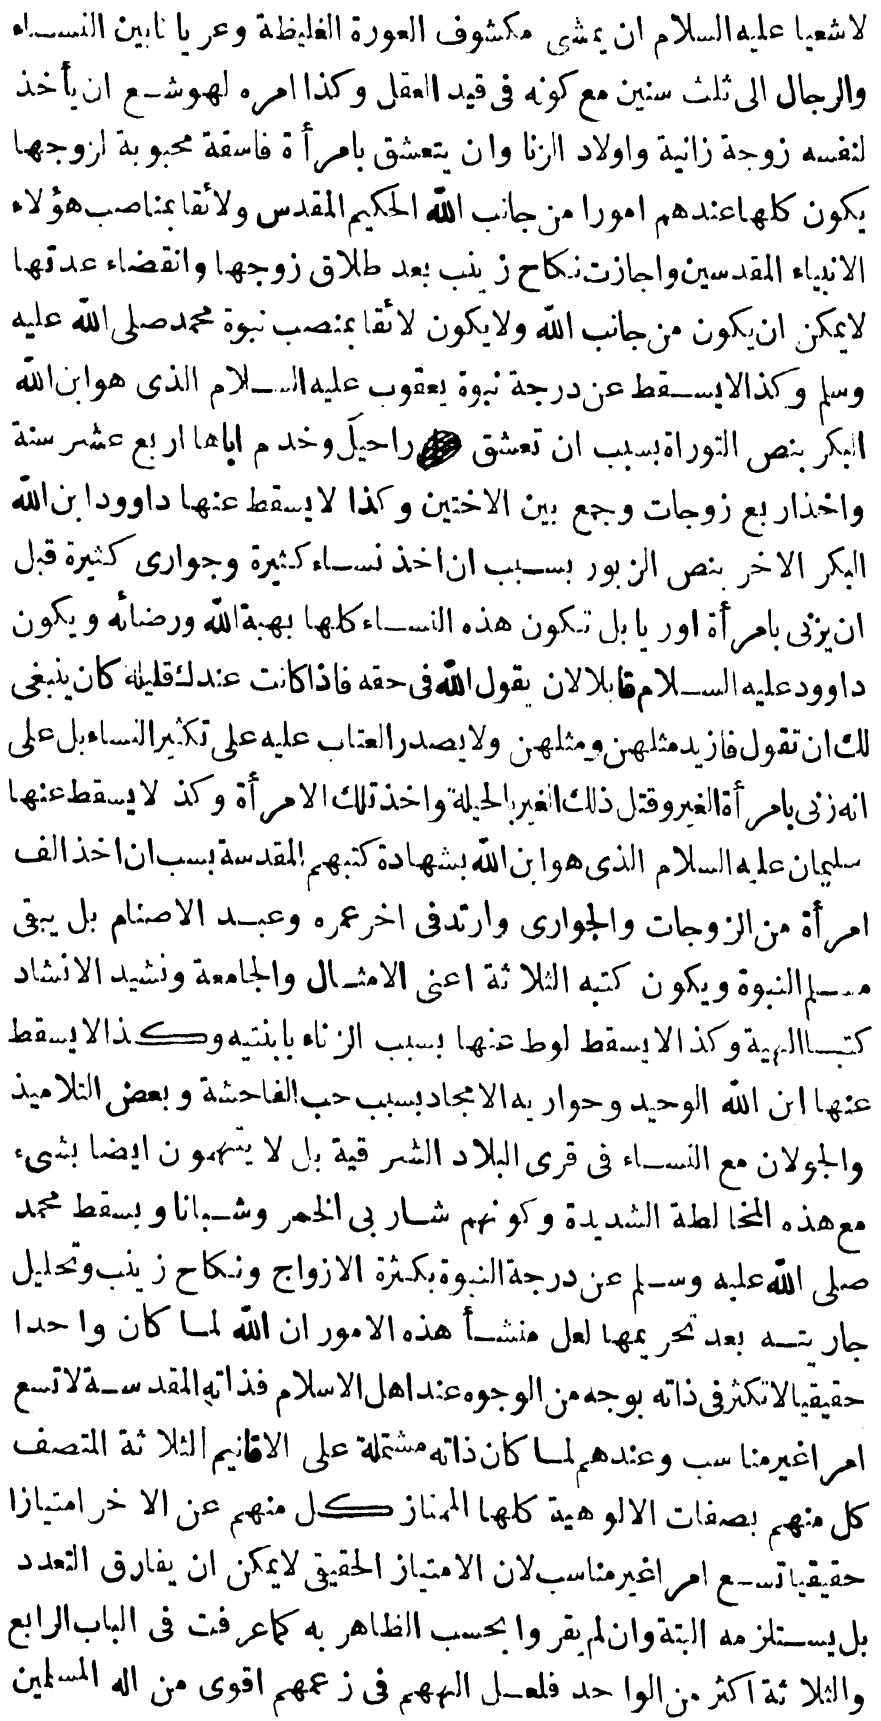 لاشعيا عليه السلام ان يمشى مكشوف العورة الغليظة وعريانا بين النساء
والرجال الى ثلث سنين مع كونه فى قيد العقل وكذا امره لهوشع ان يأخذ
لنفسه زوجة زانية واولاد الزنا وان يتعشق بامرأة فاسقة محبوبة لزوجها
يكون كلها عندهم امورا من جانب الله الحكيم المقدس ولائقا بمناصب هؤلاء
الانبياء المقدسين واجازت نكاح زينب بعد طلاق زوجها وانقضاء عدتها
لايمكن ان يكون من جانب الله ولايكون لائقا بمنصب نبوة محمد صلى الله عليه
وسلم وكذا لايسقط عن درجة نبوة يعقوب عليه السلام الذى هو ابن الله
البكر بنص التوراة بسبب ان تعشق راحيل وخدم اباها اربع عشر سنة
واخذ اربع زوجات وجمع بين الاختين وكذا لايسقط عنها داوود ابن الله
البكر الاخر بنص الزبور بسبب ان اخذ نساء كثيرة وجوارى كثيرة قبل
ان يزنى بامرأة اوريا بل تكون هذه النساء كلها بهبة الله ورضائه ويكون
داوود عليه السلام قابلا لان يقول الله فى حقه فاذا كانت عندك قليلة كان ينبغى
لك ان تقول فازيد مثلهن ومثلهن ولايصدر العتاب عليه على تكثير النساء بل على
انه زنى بامرأة الغير وقتل ذلك الغير بالحيلة واخذ تلك الامرأة وكذ لايسقط عنها
سليمان عليه السلام الذى هو ابن الله بشهادة كتبهم المقدسة بسب ان اخذ الف
امرأة من الزوجات والجوارى وارتد فى اخر عمره وعبد الاصنام بل يبقى
مسلم النبوة ويكون كتبه الثلاثة اعنى الامثال والجامعة ونشيد الانشاد
كتبا الهية وكذ الايسقط لوط عنها بسبب الزناء بابنتيه وكذالايسقط
عنها ابن الله الوحيد وحواريه الامجاد بسبب حب الفاحشة وبعض التلاميذ
والجولان مع النساء فى قرى البلاد الشرقية بل لا يتهمون ايضا بشىء
مع هذه المخالطة الشديدة وكونهم شاربى الخمر وشبانا ويسقط محمد
صلى الله عليه وسلم عن درجة النبوة بكثرة الازواج ونكاح زينب وتحليل
جاريته بعد تحريمها لعل منشأ هذه الامور ان الله لما كان واحدا
حقيقيا لاتكثر فى ذاته بوجه من الوجوه عند اهل الاسلام فذاته المقدسة لاتسع
امرا غير مناسب وعندهم لما كان ذاته مشتملة على الاقانيم الثلاثة المتصف
كل منهم بصفات الالوهية كلها الممتاز كل منهم عن الاخر امتيازا
حقيقيا تسع امرا غير مناسب لان الامتياز الحقيقى لايمكن ان يفارق التعدد
بل يستلزمه البتة وان لم يقروا بحسب الظاهر به كما عرفت فى الباب الرابع
والثلاثة اكثر من الواحد فلعل الههم فى زعمهم اقوى من اله المسلمين